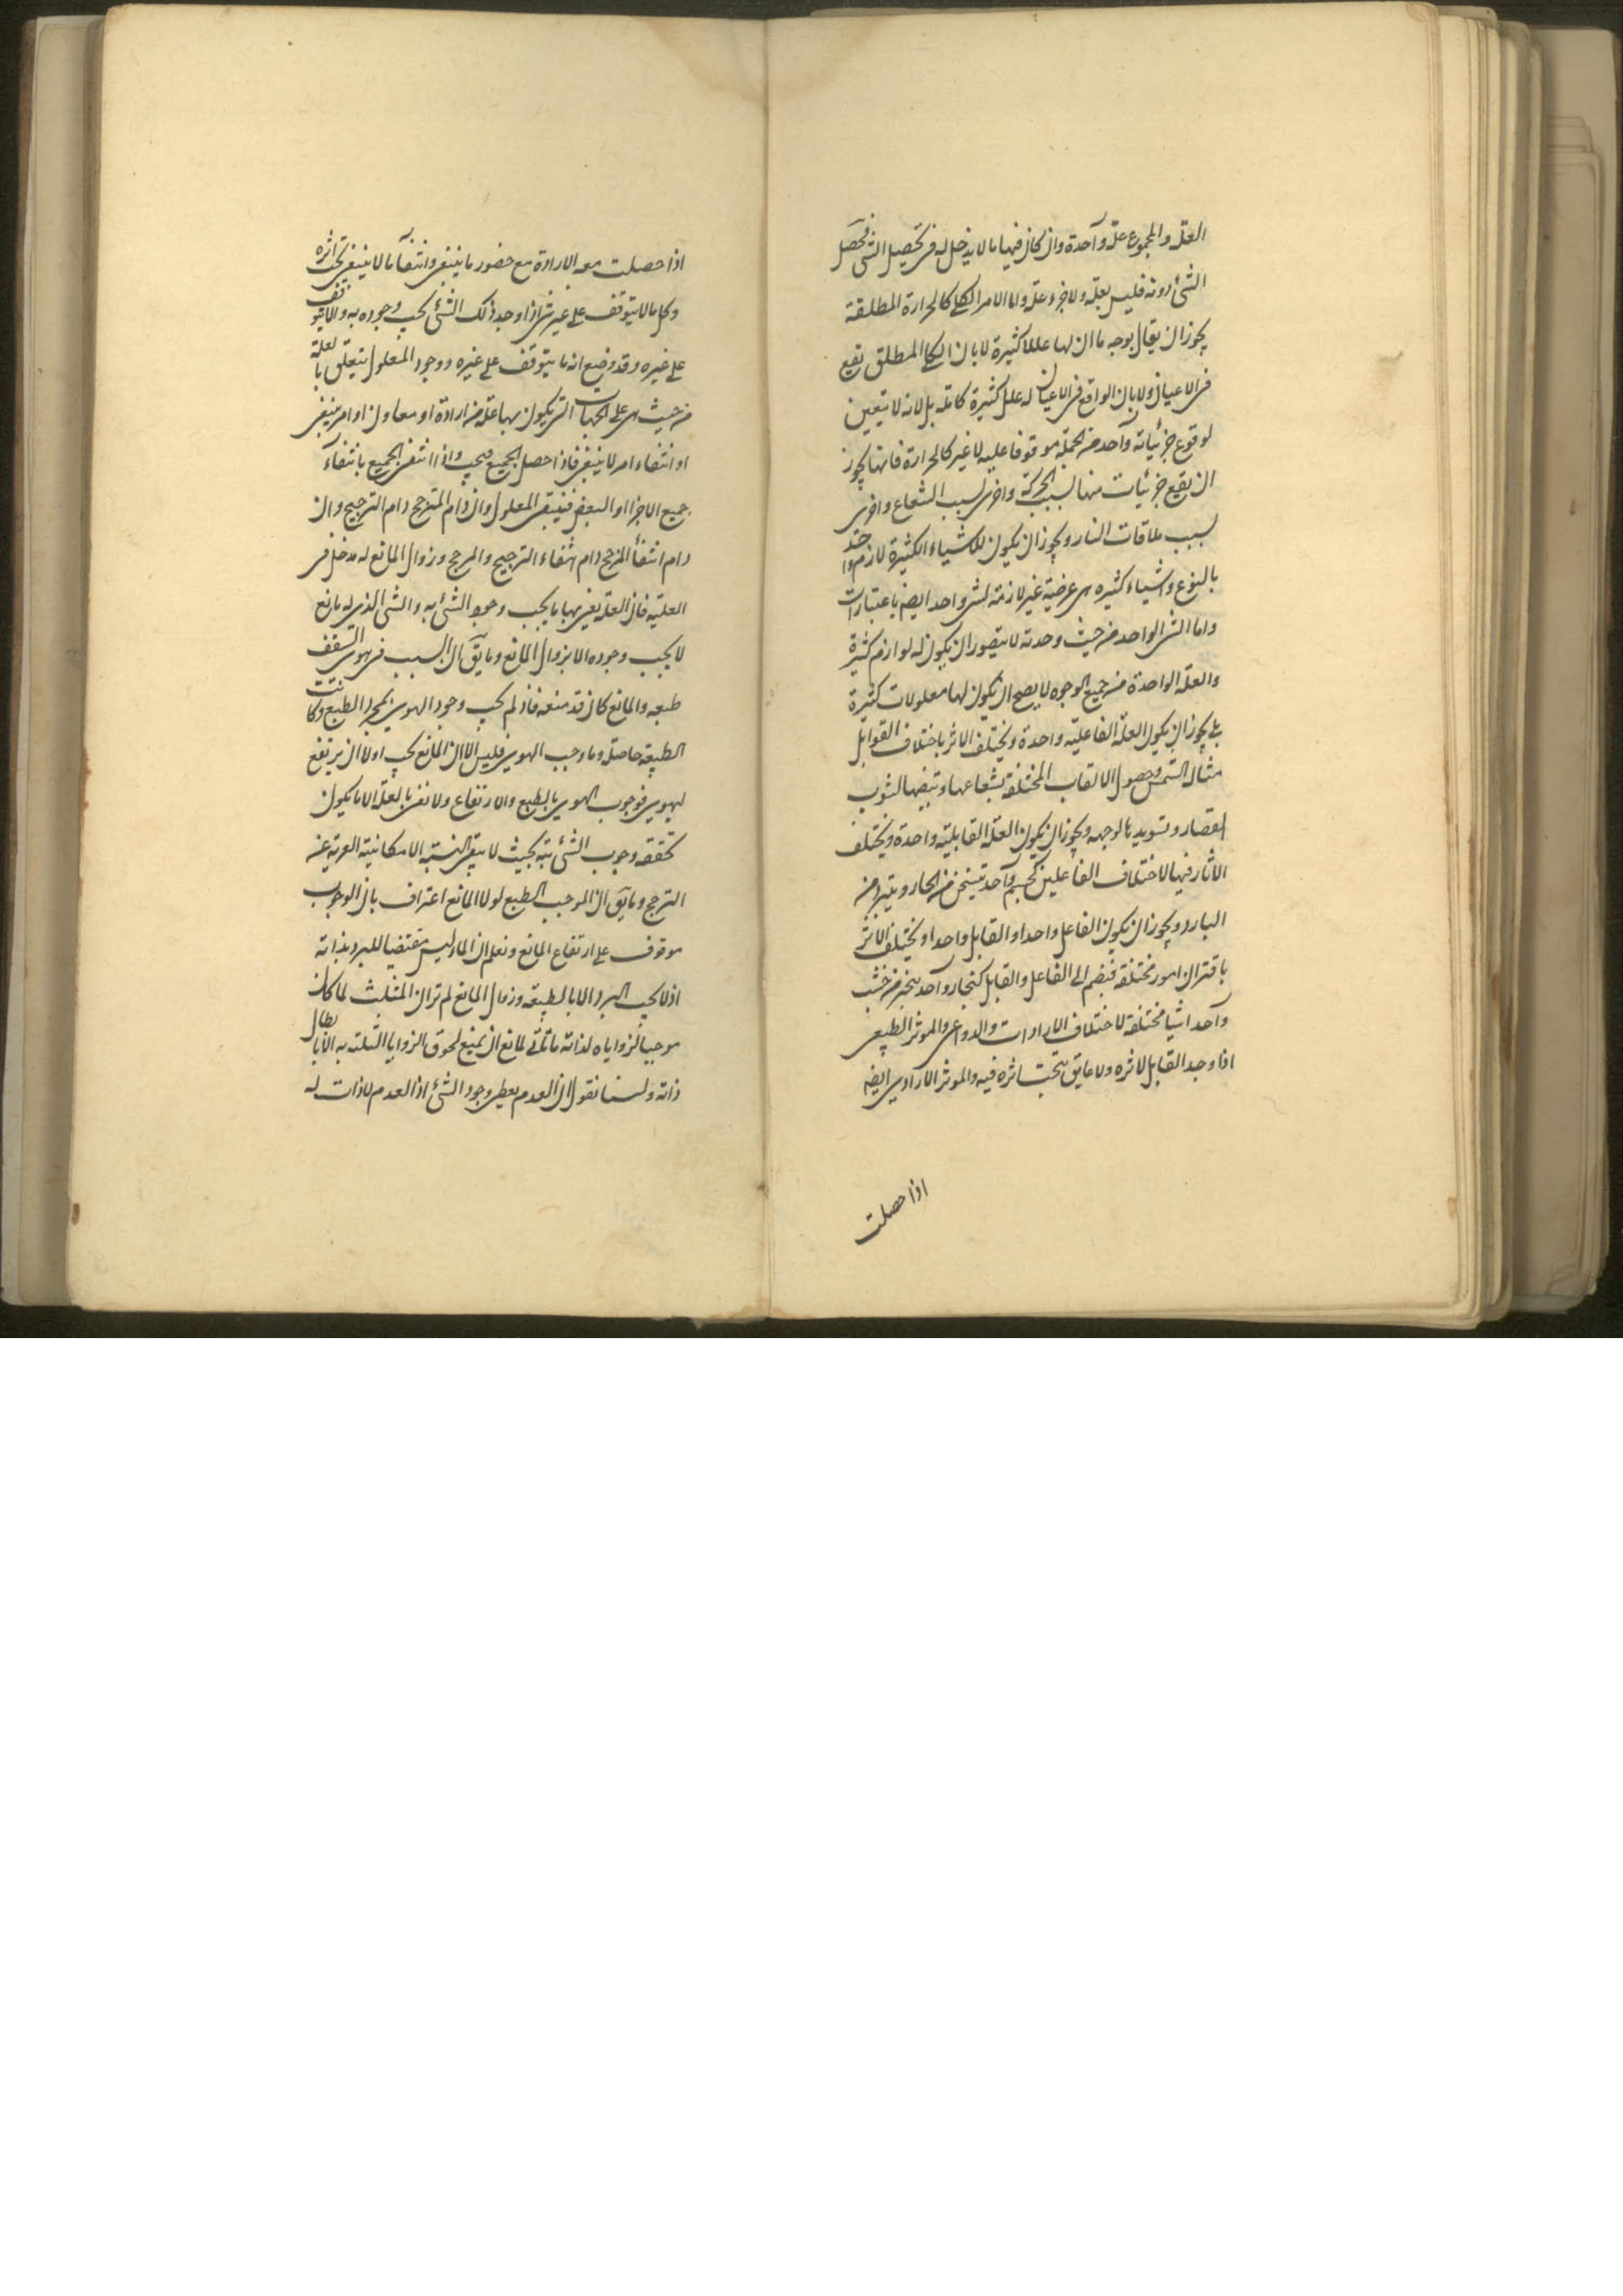 العلة والمجموع علة واحدة وان كان فيها ما لا يدخل له فى تحصيل الشى فحصل
الشئ دونه فليس بعلة ولا جزء علة واما الامر الكلى كالحرارة المطلقة
يجوز ان يقال بوجه ما ان لها عللا كثيرة لا بان الكلى المطلق يقع
فى الاعيان ولا بان الواقع فى الاعيان له علل كثيرة كاملة بل لانه لا يتعين
لوقوع جزئياته واحد من الجملة موقوفا عليه لا غير كالحرارة فانها يجوز
ان يقع جزئيات منها بسبب الحركة واخرى بسبب الشعاع واخرى
بسبب ملاقات النار ويجوز ان يكون للاشياء الكثيرة لازم واحد
بالنوع واشياء كثيره هى عرضية غير لازمة لشى واحد ايضا باعتبارات
واما الشى الواحد من حيث وحدته لا يتصور ان يكون له لوازم كثيرة
والعلة الواحدة من جميع الوجوه لا يصح ان يكون لها معلولات كثيرة
بلى يجوز ان يكون العلة الفاعلية واحدة ويختلف الاثر باختلاف القوابل
مثاله الشمس وحصول الالقاب المختلفة بشعاعها وتبيضها لثوب
القصار وتسويدها لوجهه ويجوز ان يكون العلة القابلية واحدة ويختلف
الاثار فيها لاختلاف الفاعلين كجسم واحد تيسخن من الحار ويتبرد من
البارد ويجوز ان يكون الفاعل واحدا والقابل واحدا ويختلف الاثر
باقتران امور مختلفة فينضم الى الفاعل والقابل كنجار واحد ينجر من خشب
واحد اشيا مختلفة لاختلاف الارادات والدواعى والموثر الطبيعى
اذا وجد القابل لاثره ولا عايق يجب اثره فيه والموثر الارادى ايضا
اذا حصلت
اذا حصلت معه الارادة مع حضور ما ينبغى وانتفاء ما لا ينبغى يجب اثره
وكل ما لا يتوقف على غير شئ اذا وجد ذلك الشئ يجب وجوده به والا يتوقف
على غيره وقد وضع انه ما يتوقف على غيره ووجود المعلول يتعلق بالعلة
من حيث هى على الجهات التى يكون بها علة من ارادة او معاون او امر ينبغى
او انتفاء امر لا ينبغى فاذا حصل الجميع فيجب واذا انتفى الجميع بانتفاء
جميع الاجزا او البعض فينتفى المعلول وان دام المترجح دام الترجيح وان
دام انتفاء المرجح دام انتفاء الترجيح والمرجح وزوال المانع له مدخل فى
العلية فان العلة يعنى بها ما يجب وجود الشئ به والشئ الذى له مانع
لا يجب وجوده الا بزوال المانع وما يق ان السبب فى هوى السقف
طبعه والمانع كان قد منعه فاذ لم يجب وجود الهوى بمجرد الطبع وكانت
الطبيعة حاصلة وما وجب الهوى فليس الا ان المانع يجب اولا ان يرتفع
ليهوى فوجوب الهوى بالطبع والارتفاع ولا نعنى بالعلة الا ما يكون
تحققه وجوب الشئ بته بحيث لا يبقى النسبة الامكانية العرية عن
الترجح وما يق ان الموجب الطبع لولا المانع اعتراف بان الوجوب
موقوف على ارتفاع المانع ونعلم ان الماء ليس مقتضيا للبرد بذاته
اذ لا يجب البرد الا بالطبيعة وزوال المانع لم تر ان المثلث لما كان
موجبا لزواياه لذاته ما تأتى لمانع ان يمنع لحوق الزوايا الثلث به الا بابطال
ذاته ولسنا نقول ان العدم يعطى وجود الشئ اذ العدم لا ذات له